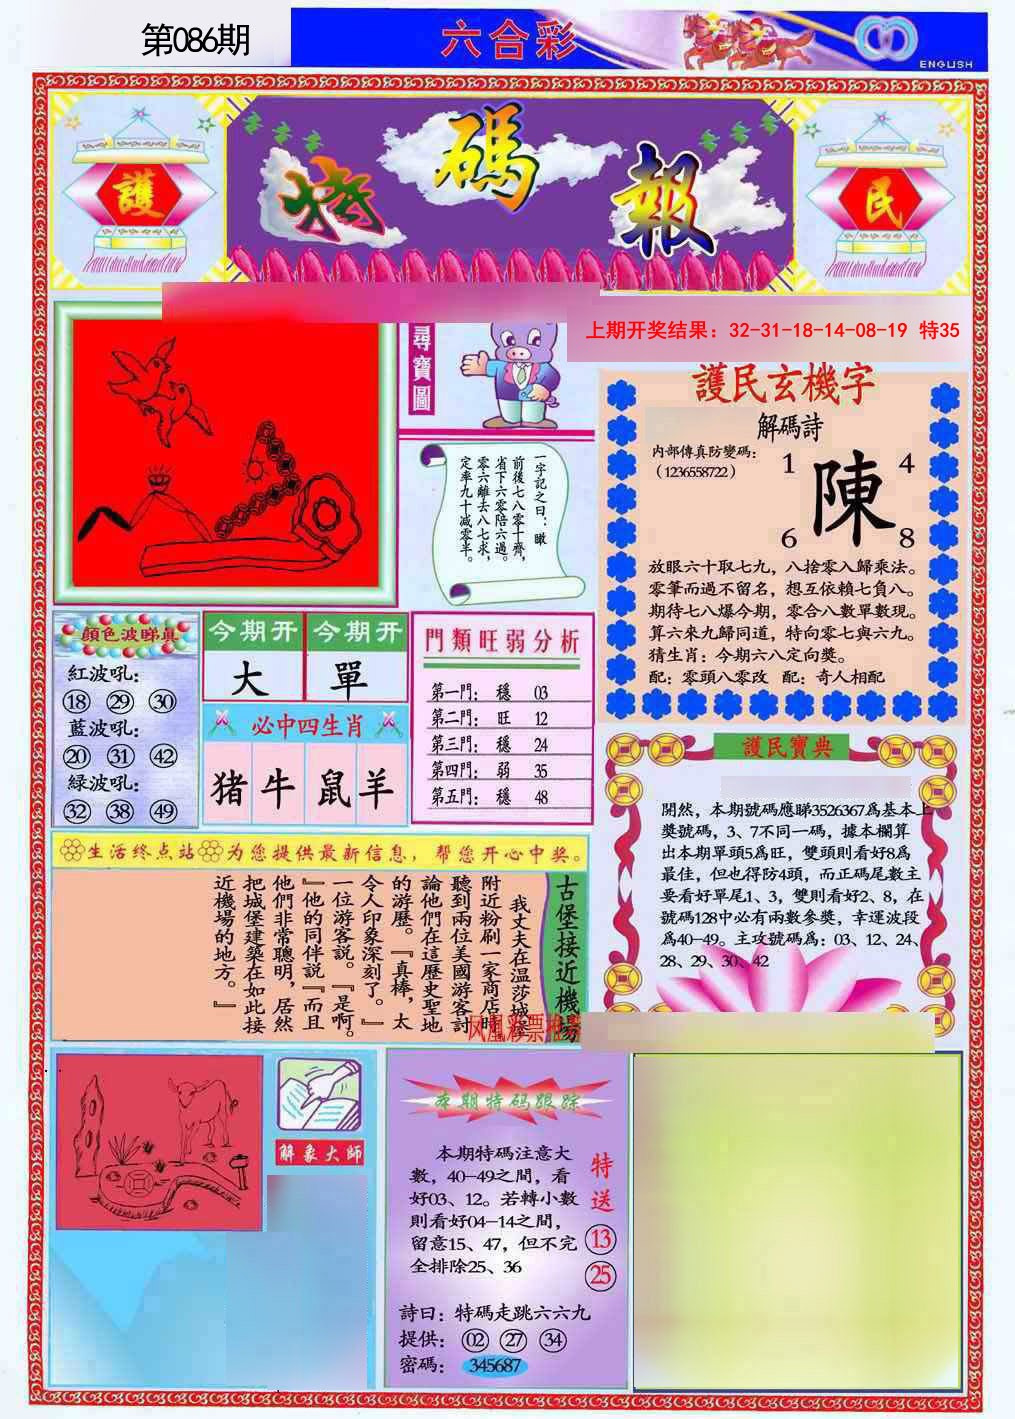 第086期
六合彩
ENGLISH
護
特碼報
民
上期开奖结果：32-31-18-14-08-19 特35
尋寶圖
一字記之曰：瞰
前後七八零十齊，
省下六零陪六過。
零六離去八七求，
定率九十減零半。
護民玄機字
解碼詩
内部傳真防變碼：
（1236558722）
1 4
陳
6 8
放眼六十取七九，八捨零入歸乘法。
零筆而過不留名，想互依賴七負八。
期待七八爆今期，零合八數單數現。
算六來九歸同道，特向零七與六九。
猜生肖：今期六八定向獎。
配：零頭八零改 配：奇人相配
顔色波睇真
紅波吼：
18 29 30
藍波吼：
20 31 42
緑波吼：
32 38 49
今期开 今期开
大 單
必中四生肖
猪牛鼠羊
門類旺弱分析
第一門： 穩 03
第二門： 旺 12
第三門： 穩 24
第四門： 弱 35
第五門： 穩 48
護民寶典
開然，本期號碼應睇3526367爲基本上
獎號碼，3、7不同一碼，據本欄算
出本期單頭5爲旺，雙頭則看好8爲
最佳，但也得防4頭，而正碼尾數主
要看好單尾1、3，雙則看好2、8，在
號碼128中必有兩數參獎，幸運波段
爲40—49。主攻號碼爲：03、12、24、
28、29、30、42
生活终点站 为您提供最新信息，帮您开心中奖。
古堡接近機場
我丈夫在温莎城堡
附近粉刷一家商店時
聽到兩位美國游客討
論他們在這歷史聖地
的游歷。『真棒，太
令人印象深刻了。』
一位游客説。『是啊。
』他的同伴説『而且
他們非常聰明，居然
把城堡建築在如此接
近機場的地方。』
凤凰彩票
解象大師
本期特码跟踪
本期特碼注意大
數，40—49之間，看
好03、12。若轉小數
則看好04—14之間，
留意15、47，但不完
全排除25、36
特送
13
25
詩曰：特碼走跳六六九
提供： 02 27 34
密碼： 345687